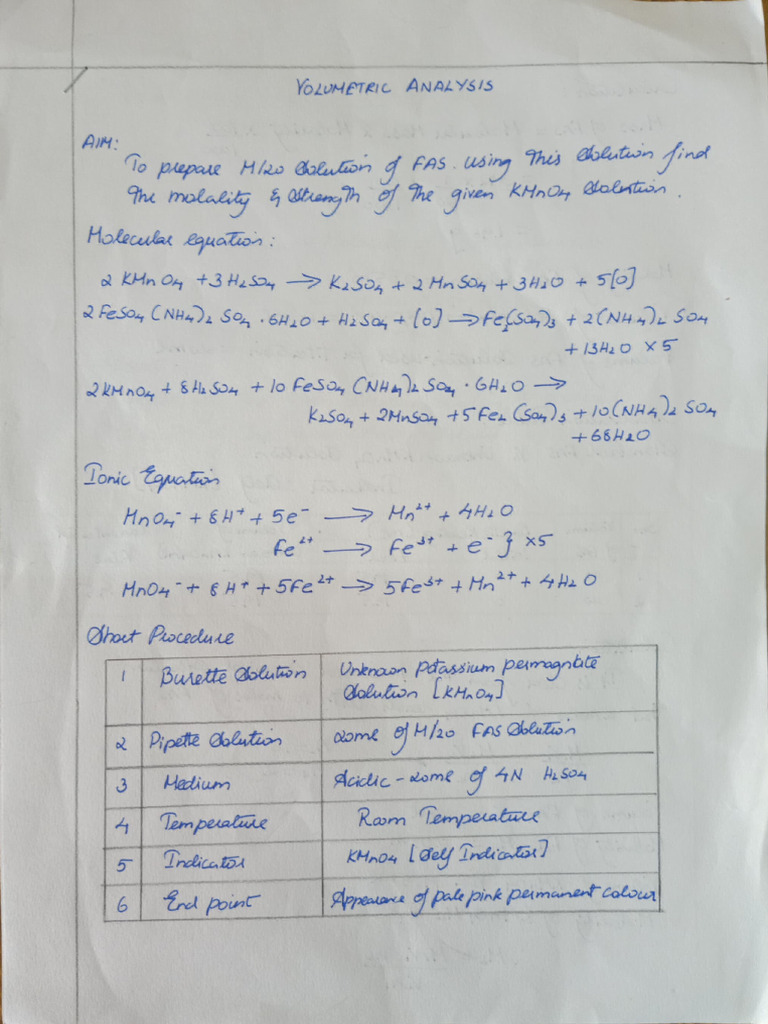 VOLUMETRIC ANALYSIS
AIM:
To prepare M/20 solution of FAS. Using this solution find
the molality & strength of the given KMnO4 solution.
Molecular equation:
2 KMnO4 + 3H2SO4 → K2SO4 + 2MnSO4 + 3H2O + 5[O]
2FeSO4(NH4)2 SO4 · 6H2O + H2SO4 + [O] → Fe2(SO4)3 + 2(NH4)2 SO4
+ 13H2O × 5
2KMnO4 + 8H2SO4 + 10 FeSO4 (NH4)2 SO4 · 6H2O →
K2SO4 + 2MnSO4 + 5Fe2(SO4)3 + 10(NH4)2 SO4
+ 68H2O
Ionic Equation
MnO4⁻ + 8H⁺ + 5e⁻ → Mn²⁺ + 4H2O
Fe²⁺ → Fe³⁺ + e⁻ } ×5
MnO4⁻ + 8H⁺ + 5Fe²⁺ → 5Fe³⁺ + Mn²⁺ + 4H2O
Short Procedure
1 Burette Solution Unknown potassium permagnatate
Solution [KMnO4]
2 Pipette Solution 20ml of M/20 FAS Solution
3 Medium Acidic - 20ml of 4N H2SO4
4 Temperature Room Temperature
5 Indicator KMnO4 [Self Indicator]
6 End point Appearance of pale pink permanent colour